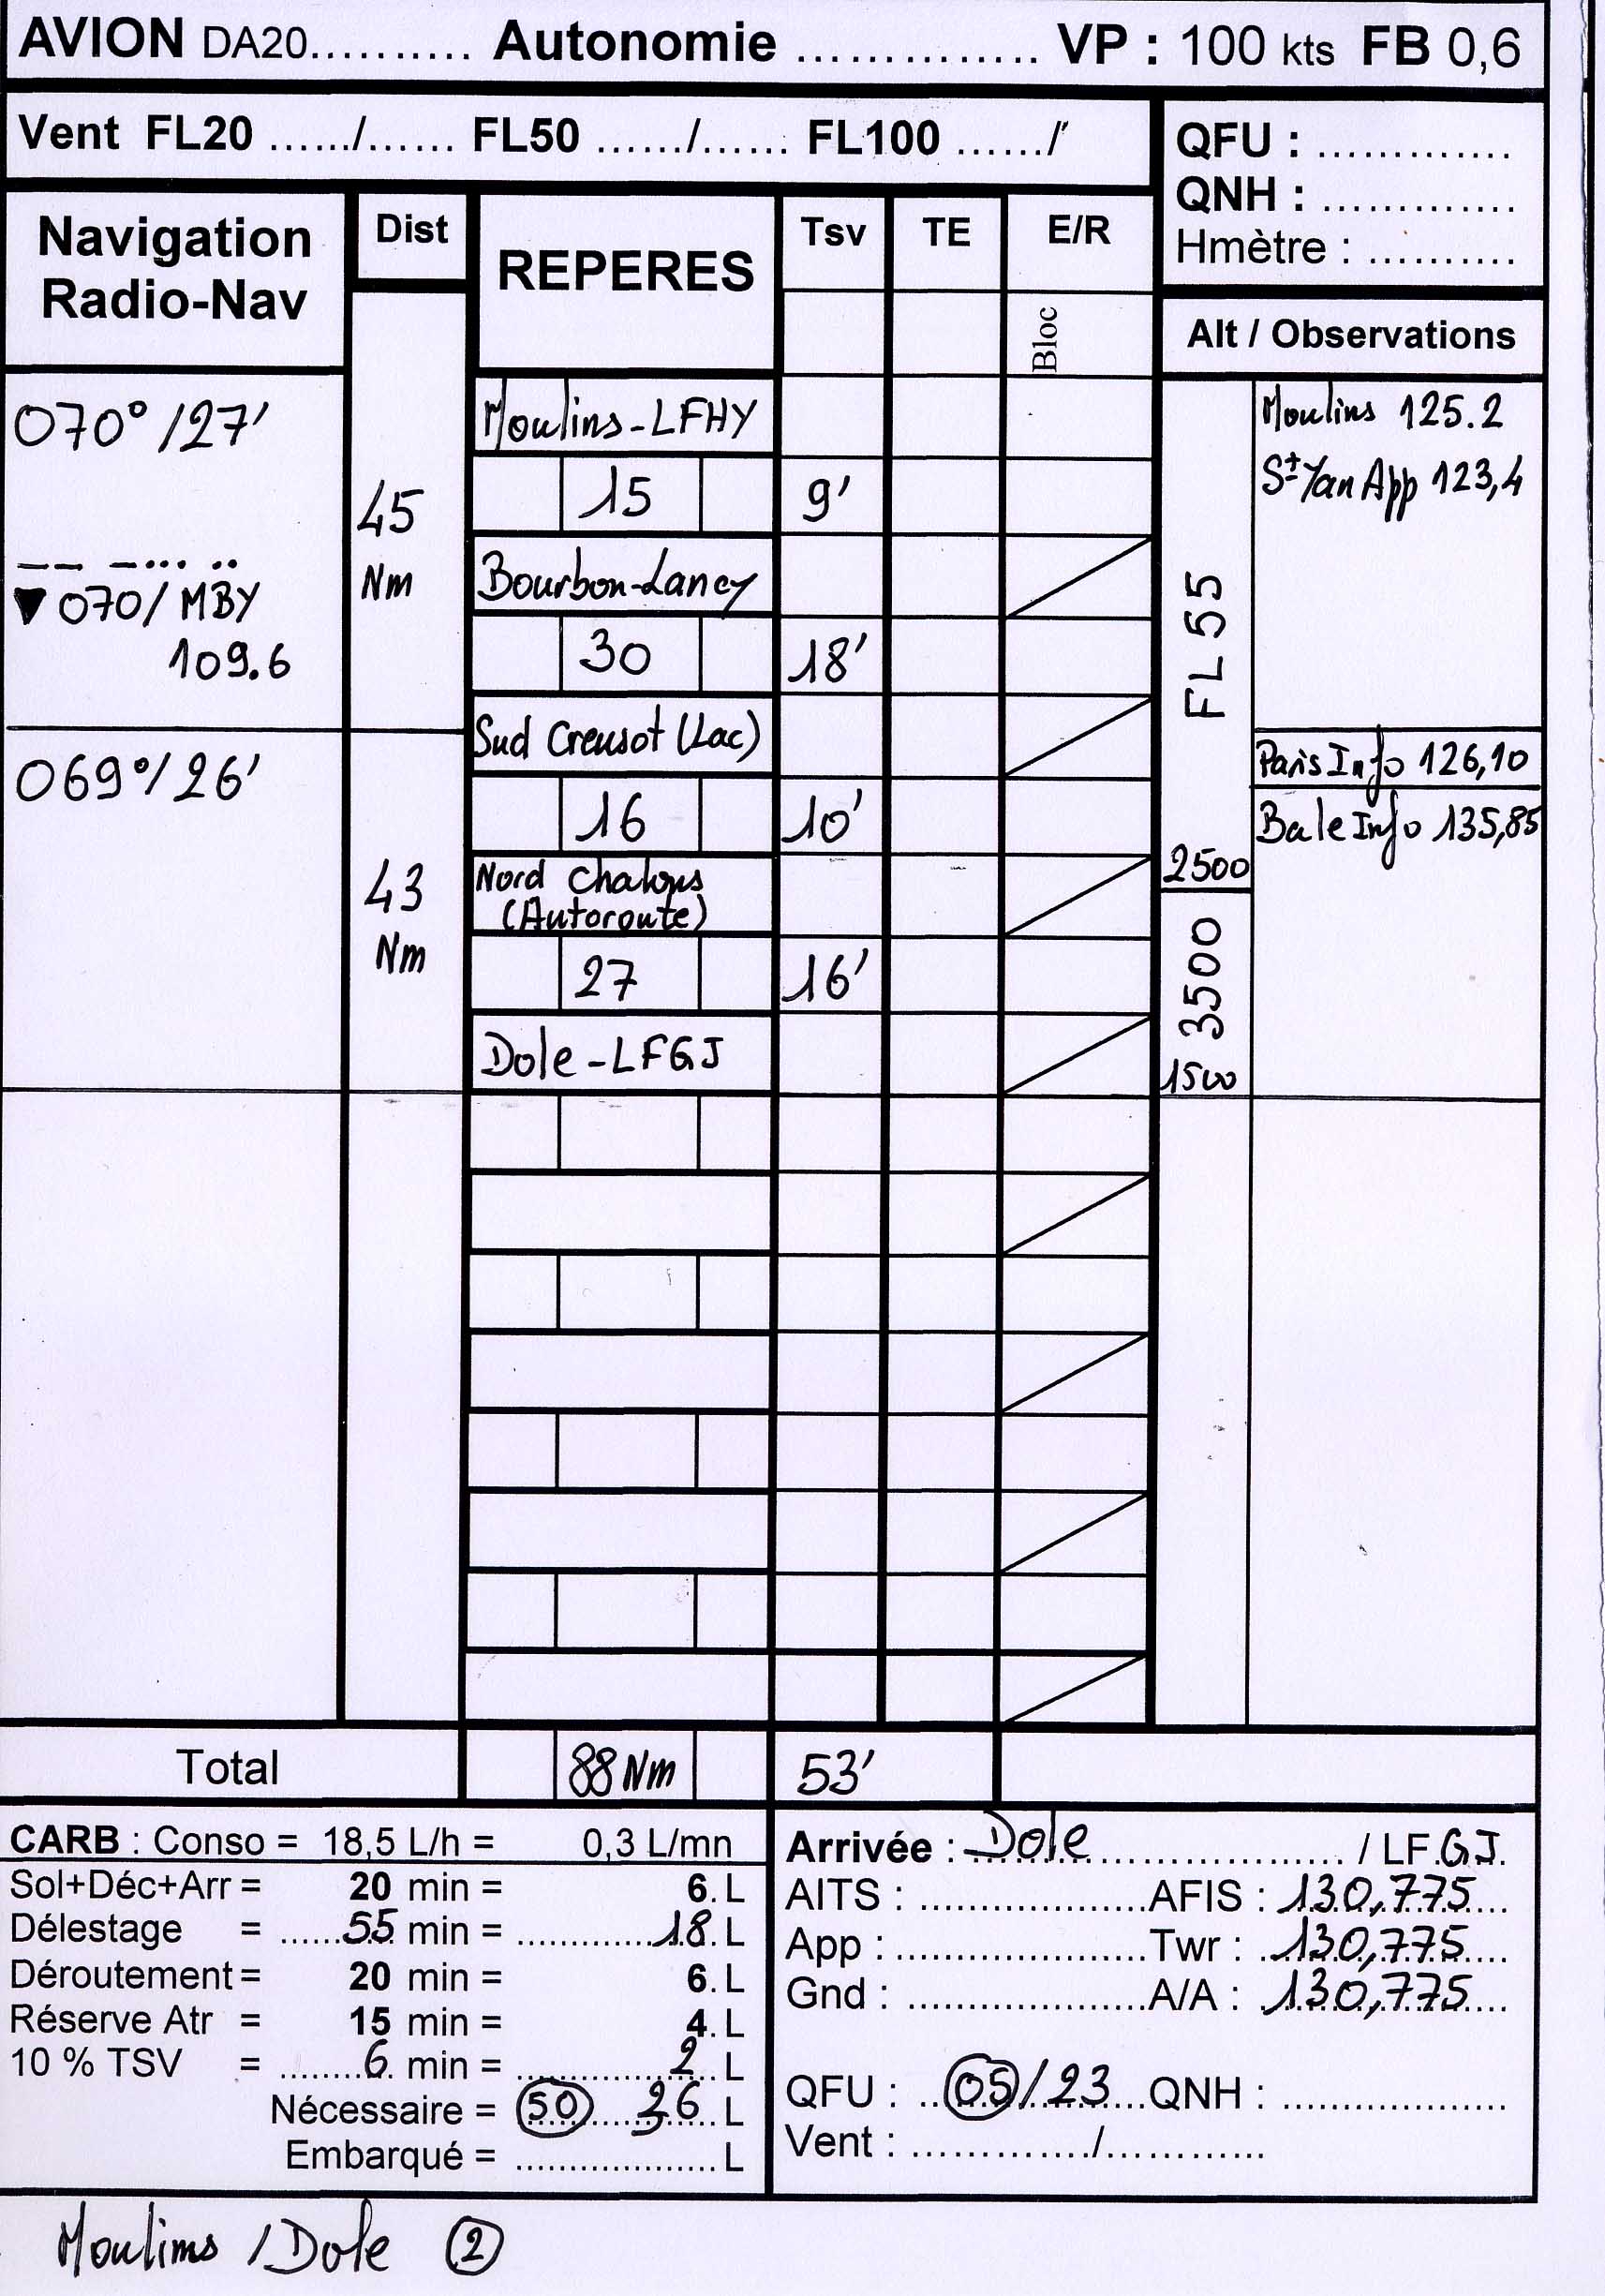 AVION DA20.......... Autonomie .............. VP : 100 kts FB 0,6
Vent FL20 ....../...... FL50 ....../...... FL100 ....../
QFU : .............
QNH : .............
Hmètre : ..........
Navigation
Radio-Nav
Dist
REPERES
Tsv
TE
E/R
Bloc
Alt / Observations
070°/27'
45
Nm
▼ 070/ MBY
109.6
Moulins-LFHY
15
9'
Bourbon-Lancy
30
18'
FL55
Moulins 125.2
St Yan App 123,4
069°/26'
43
Nm
Sud Creusot (Lac)
16
10'
Nord Chalons
(Autoroute)
27
16'
Dole-LFGJ
Paris Info 126,10
Bale Info 135,85
2500
3500
1500
Total
88Nm
53'
CARB : Conso = 18,5 L/h = 0,3 L/mn
Sol+Déc+Arr = 20 min = 6. L
Délestage = ......55. min = .............18. L
Déroutement = 20 min = 6. L
Réserve Atr = 15 min = 4. L
10 % TSV = ........6. min = ..............2.. L
Nécessaire = (50) 36 L
Embarqué = ................... L
Arrivée : Dole ...................... / LF.GJ.
AITS : .....................AFIS : 130,775
App : .......................Twr : 130,775
Gnd : ......................A/A : 130,775
QFU : ..(05)/23...QNH : ....................
Vent : ............./............
Moulins / Dole (2)